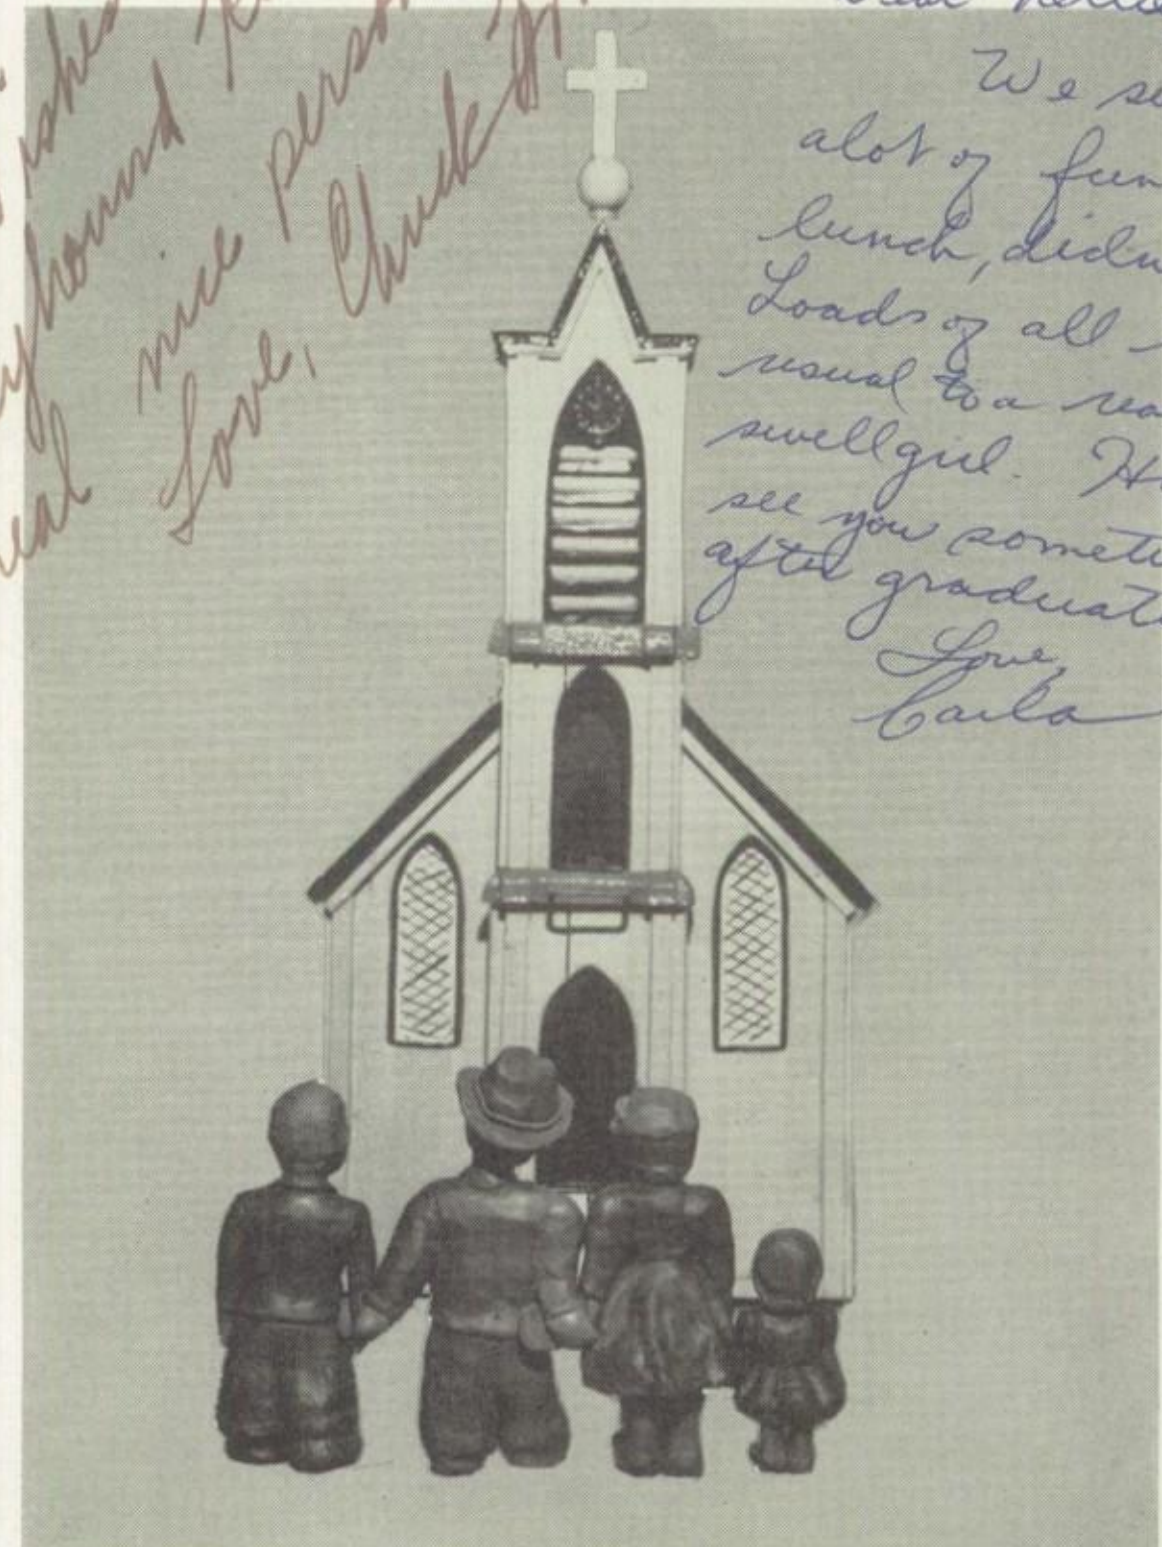 ishes
yhound
real nice person
Love,
Chuck
We
alot of fun
lunch, didn
Loads of all
usual to a rea
swell girl. H
see you someti
after graduati
Love,
Carla